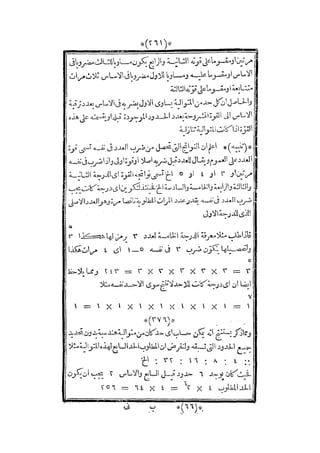 *(٢٦١)*
مرتين او مقسوما على قوته الثانية والرابع يكون مساويا للثالث مضروبا فى
الاساس او مقسوما عليه ومساويا للاول مضروبا فى الاساس ثلاث مرات
متتابعة او مقسوما على قوته الثالثة
والحاصل ان كل حد من المتوالية يساوى الاول بضربه فى الاساس بعدد ترقية
الاساس الى القوة المشروحة بعدد الحدود الموجودة قبل او بقسمته على هذه
القوة اذا كانت المتوالية تنازلية
*(تنبيه)* اعلم ان النواتج التى تحصل من ضرب العدد فى نفسه تسمى قوة
العدد على العموم ويقال للعدد قبل ضربه اصلا او قوة اولى واذا ضرب فى نفسه
مرتين او ٣ او ٤ او ٥ الخ تسمى نواتجه القوة اى الدرجة الثانية
والثالثة والرابعة والخامسة والسادسة الخ فحينئذ لتكوين اى درجة كانت يجب
ضرب العدد فى نفسه بقدر عدد المرات المطلوبة ناقصا مرة وهو العدد الاصلى
الذى للدرجة الاولى
فاذا طلب مثلا معرفة الدرجة الخامسة لعدد ٣ يرمز لها هكذا ٣
٥
وتحصيلها يكون ضرب ٣ فى نفسه ٥-١ اى ٤ مرات هكذا
٥
٣ = ٣ × ٣ × ٣ × ٣ × ٣ = ٢٤٣ ومما يلاحظ
ايضا ان اى درجة كانت للاحد لا تنتج سوى الاحد نفسه مثلا
٧
١ = ١ × ١ × ١ × ١ × ١ × ١ × ١ = ١
*(٣٧٦)*
ومما ذكر يستنتج انه يمكن حساب اى حد كان من متوالية هندسية بدون تحديد
جميع الحدود التى تسبقه ولنفرض ان المطلوب الحد السابع لهذه المتوالية مثلا
:: ٤ : ٨ : ١٦ : ٣٢ : الخ
فحيث كان يوجد ٦ حدود قبل السابع والاساس ٢ يجب ان يكون
الحد المطلوب ٤ × ٢٦ = ٤ × ٦٤ = ٢٥٦
*(٦٦)* ب نى